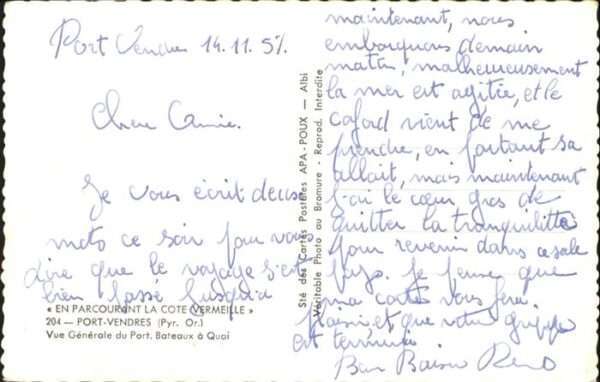 Port Vendres 14.11.57.
Chere Camie.
Je vous écrit deuse
moto ce soir pour vous
dire que le voyage s'est
bien passé jusqu'a
maintenant, nous
embarquons demain
matin, malheureusement
la mer est agitée, et le
cafard vient de me
prendre, en partant sa
allait, mais maintenant
j'ai le cœur gros de
quitter la tranquilitté
pour revenir dans ce sale
pays. Je pense que
ma carte vous fera
plaisir, et que votre grippe
est terminée
Bon Baiser René
« EN PARCOURANT LA COTE VERMEILLE »
204 — PORT-VENDRES (Pyr. Or.)
Vue Générale du Port. Bateaux à Quai
Sté des Cartes Postales APA-POUX — Albi
Véritable Photo au Bromure - Reprod. Interdite